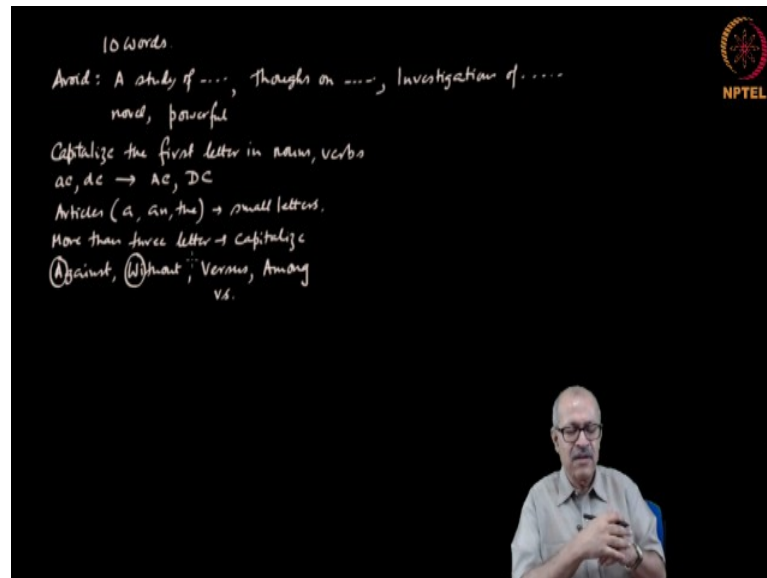 10 words.
NPTEL
Avoid: A study of ...., Thoughts on ....., Investigation of .....
novel, powerful
Capitalize the first letter in nouns, verbs
ac, dc → AC, DC
Articles (a, an, the) → small letters.
More than three letter → Capitalize
Against, Without, Versus, Among
vs.